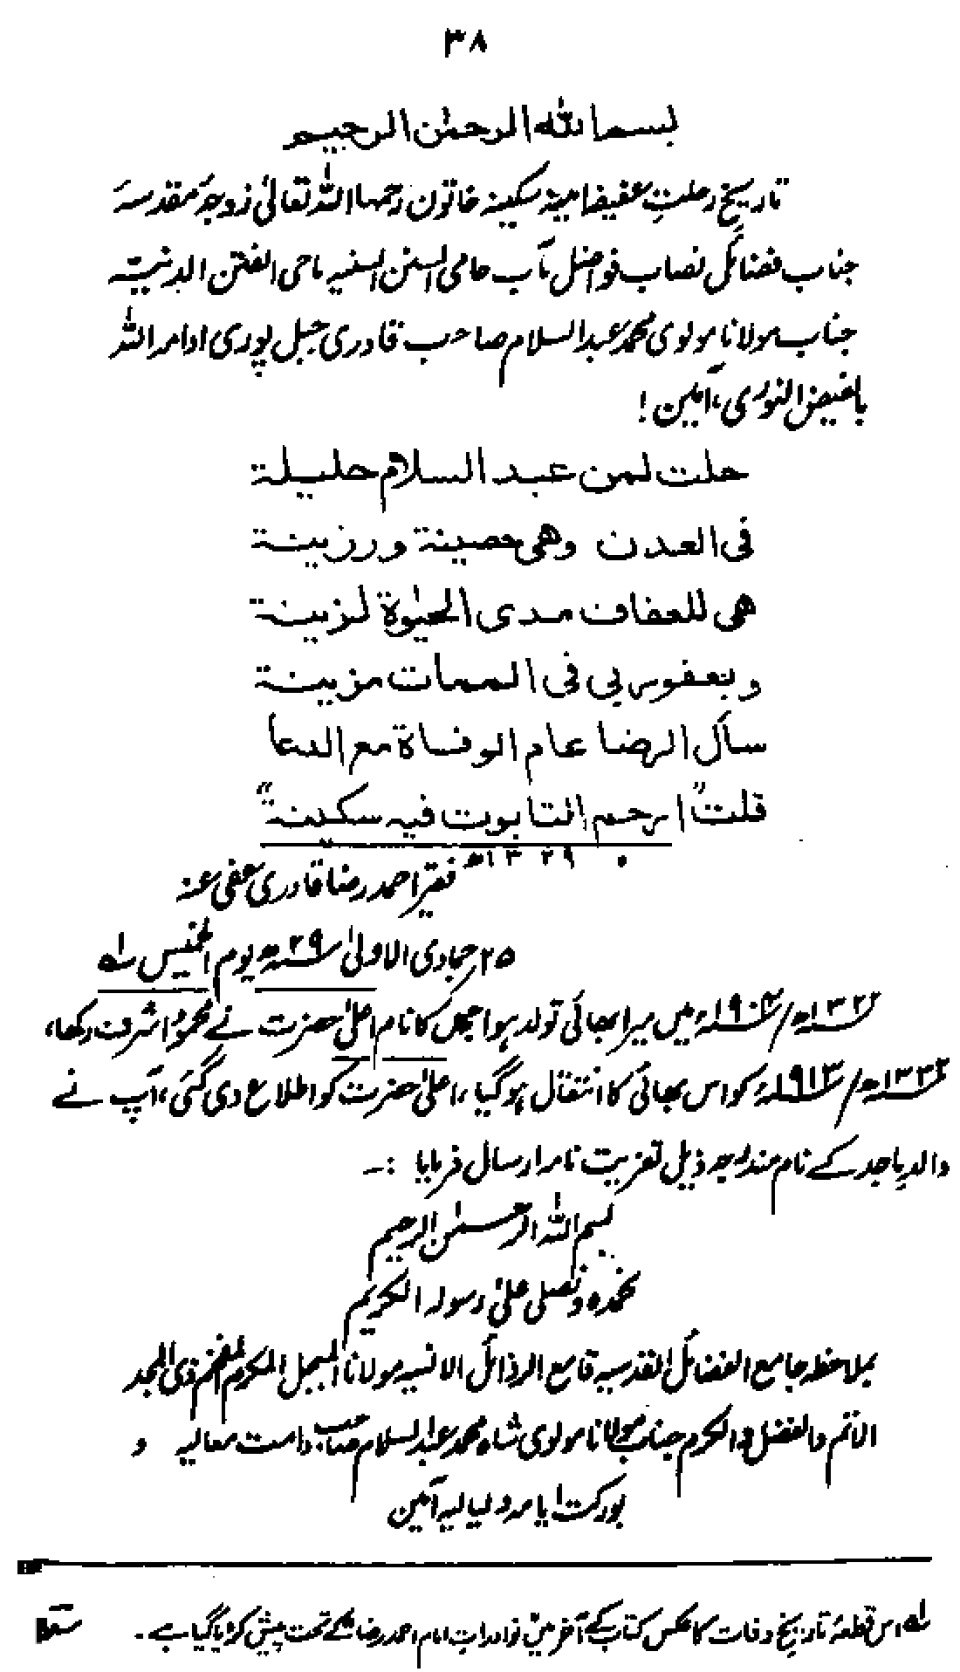 ۳۸
بسم الله الرحمٰن الرحیم
تاریخ رحلتِ عفیفہ امینہ سکینہ خاتون رحمہا اللہ تعالیٰ زوجۂ مقدسہ
جناب فضائل نصاب فواضل مآب حامی السنن السنیہ ماحی الفتن الدنیۃ
جناب مولانا مولوی محمد عبدالسلام صاحب قادری جبل پوری ادامہ اللہ
بالفیض النوری، آمین !
حلت لمن عبد السلام حلیلة
فی العدن وهی حصینة ورزینة
هی للعفاف مدی الحیٰوة لزینة
وبعفو ربی فی الممات مزینة
سأل الرضا عام الوفاة مع الدعا
قلت " ارحم التابوت فیه سکینة "
۱۳۲۹ھ
فقیر احمد رضا قادری عفی عنہ
۲۵ جمادی الاولیٰ ۲۹ھ یوم الخمیس لہ
۱۳۲۲ھ/ ۱۹۰۴ء میں میرا بھائی تولد ہوا جس کا نام اعلیٰ حضرت نے محمود اشرف رکھا،
۱۳۳۲ھ/ ۱۹۱۳ء کو اس بھائی کا انتقال ہوگیا ، اعلیٰ حضرت کو اطلاع دی گئی ، آپ نے
والدِ ماجد کے نام مندرجہ ذیل تعزیت نامہ ارسال فرمایا :۔
بسم اللہ الرحمٰن الرحیم
نحمدہ ونصلی علیٰ رسولہ الکریم
بملاحظہ جامع الفضائل القدسیہ قامع الرذائل الانسیہ مولانا المبجل المکرم المفخم ذی المجد
الاتم والفضل والکرم جناب مولانا مولوی شاہ محمد عبدالسلام صاحب دامت معالیہ و
بورکت ایامہ ولیالیہ آمین
لہ اس قطعۂ تاریخ وفات کا عکس کتاب کے آخر میں نوادراتِ امام احمد رضا کے تحت پیش کردیا گیا ہے ۔